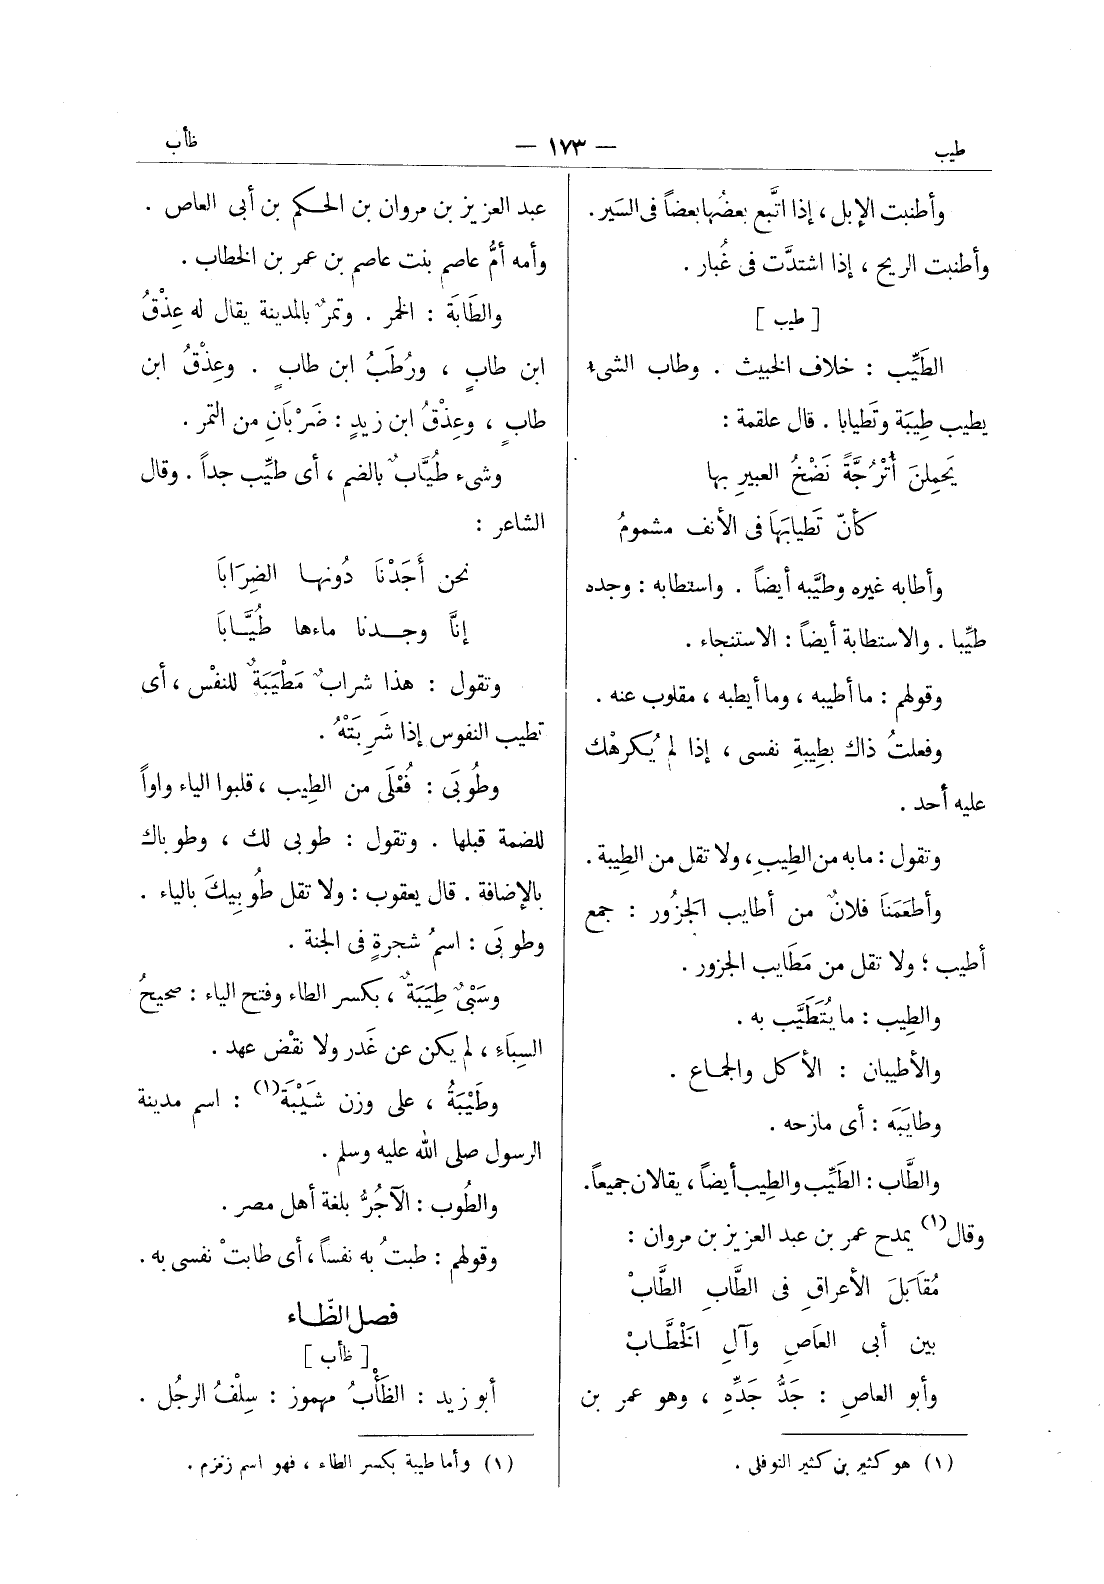 طيب
— ١٧٣ —
ظأب
وأطنبت الإبل ، إذا اتَّبع بعضُها بعضاً فى السَير .
وأطنبت الريح ، إذا اشتدَّت فى غُبار .
[ طيب ]
الطَيِّب : خلاف الخبيث . وطاب الشىء
يطيب طِيبَة وتَطيابا . قال علقمة :
يَحمِلنَ أُتْرُجَّةً نَضْخُ العبيرِ بها
كأنّ تَطيابَهَا فى الأنف مشمومُ
وأطابه غيره وطيَّبه أيضاً . واستطابه : وجده
طيِّبا . والاستطابة أيضاً : الاستنجاء .
وقولهم : ما أطيبه ، وما أيطبه ، مقلوب عنه .
وفعلتُ ذاك بطِيبةِ نفسى ، إذا لم يُكرهْك
عليه أحد .
وتقول : ما به من الطِيبِ ، ولا تقل من الطِيبة .
وأطعَمَنَا فلانٌ من أطايب الجَزُور : جمع
أطيب ؛ ولا تقل من مَطَايب الجزور .
والطِيب : ما يُتَطَيَّب به .
والأطيبان : الأكل والجماع .
وطايَبَه : أى مازحه .
والطَّاب : الطَيِّب والطِيب أيضاً ، يقالان جميعاً .
وقال(١) يمدح عمر بن عبد العزيز بن مروان :
مُقَابَلَ الأعراقِ فى الطَّابِ الطَّابْ
بين أبى العَاصِ وآلِ الخَطَّابْ
وأبو العاصِ : جَدُّ جَدِّهِ ، وهو عمر بن
(١) هو كثير بن كثير النوفلى .
عبد العزيز بن مروان بن الحكم بن أبى العاص .
وأمه أمُّ عاصم بنت عاصم بن عمر بن الخطاب .
والطَابَة : الخمر . وتمرٌ بالمدينة يقال له عِذْقُ
ابن طابٍ ، ورُطَبُ ابن طابٍ . وعِذْقُ ابن
طابٍ ، وعِذْقُ ابن زيدٍ : ضَرْبَانِ من التمر .
وشىء طُيَّابٌ بالضم ، أى طيِّب جداً . وقال
الشاعر :
نحن أَجَدْنَا دُونها الضِرَابَا
إنَّا وجدنا ماءها طُيَّابَا
وتقول : هذا شرابٌ مَطْيَبَةٌ للنفْس ، أى
تطيب النفوس إذا شَرِبَتْهُ .
وطُوبَى : فُعْلَى من الطِيب ، قلبوا الياء واواً
للضمة قبلها . وتقول : طوبى لك ، وطوباك
بالإضافة . قال يعقوب : ولا تقل طُوبِيكَ بالياء .
وطوبَى : اسمُ شجرةٍ فى الجنة .
وسَبْىٌ طِيَبَةٌ ، بكسر الطاء وفتح الياء : صحيحُ
السِبَاءِ ، لم يكن عن غَدر ولا نقْض عهد .
وطَيْبَةُ ، على وزن شَيْبَة(١) : اسم مدينة
الرسول صلى الله عليه وسلم .
والطُوب : الآجُرُّ بلغة أهل مصر .
وقولهم : طبتُ به نفساً ، أى طابتْ نفسى به .
فصل الظّاء
[ ظأب ]
أبو زيد : الظَأْبُ مهموز : سِلْفُ الرجُل .
(١) وأما طيبة بكسر الطاء ، فهو اسم زمزم .